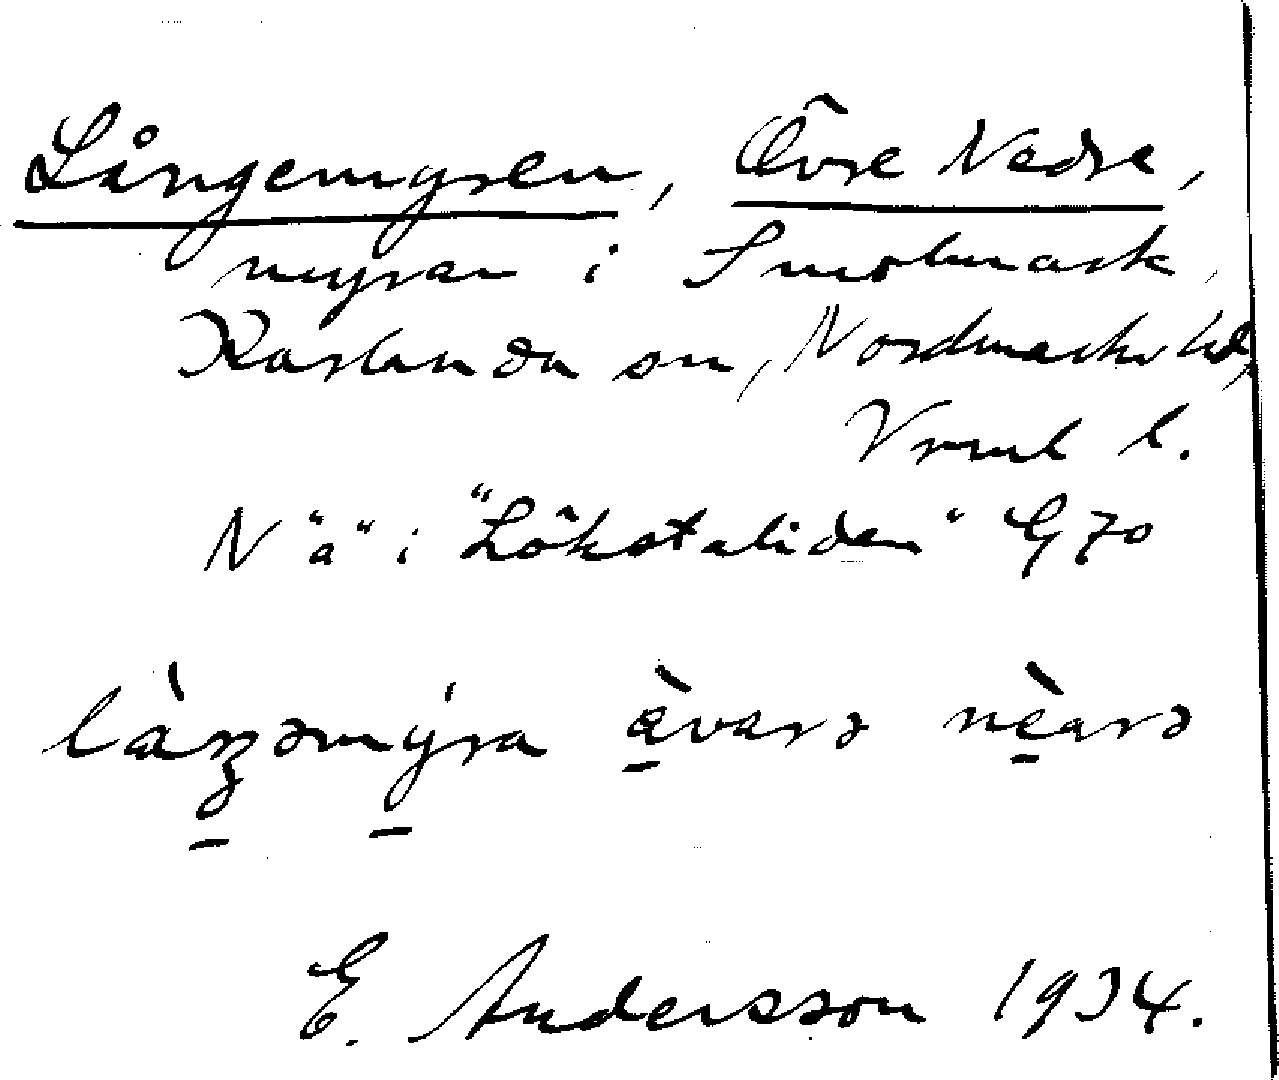 Långemyren, Övre Nedre,
myrar i Smolmark,
Karlanda sn, Nordmarks hd,
Vrml l.
N "a" i "Lökstaliden" G70
E. Andersson 1934.